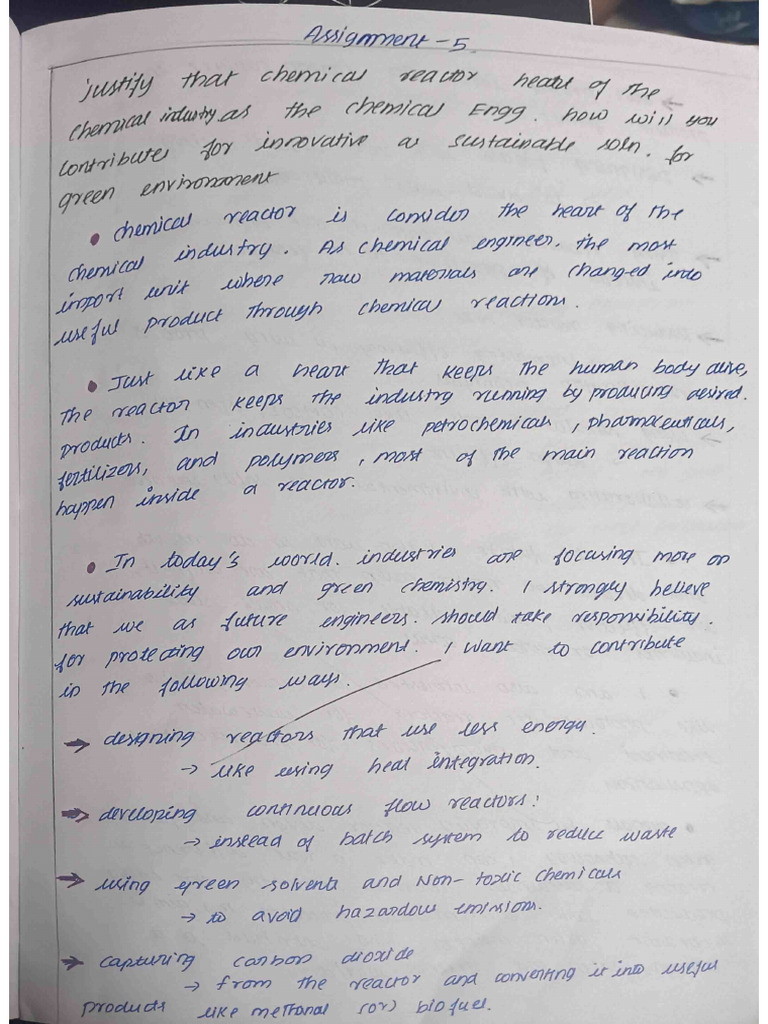 Assignment - 5
Justify that chemical reactor heart of the
chemical industry. as the chemical Engg. how will you
contributes for innovative as sustainable soln. for
green environment
• chemical reactor is consider the heart of the
chemical industry. As chemical engineer. the most
import unit where raw materials are changed into
useful product through chemical reactions.
• Just like a heart that keeps the human body alive,
the reactor keeps the industry running by producing desired.
products. In industries like petrochemicals, pharmaceuticals,
fertilizers, and polymers, most of the main reaction
happen inside a reactor.
• In today's world. industries are focusing more on
sustainability and green chemistry. I strongly believe
that we as future engineers. should take responsibility.
for protecting our environment. I want to contribute
in the following ways.
→ designing reactors that use less energy.
→ like using heat integration.
→ developing continuous flow reactors:
→ instead of batch system to reduce waste
→ using green solvents and Non-toxic chemicals
→ to avoid hazardous emissions.
→ capturing carbon dioxide
→ from the reactor and converting it into useful
products like methanal (or) biofuel.